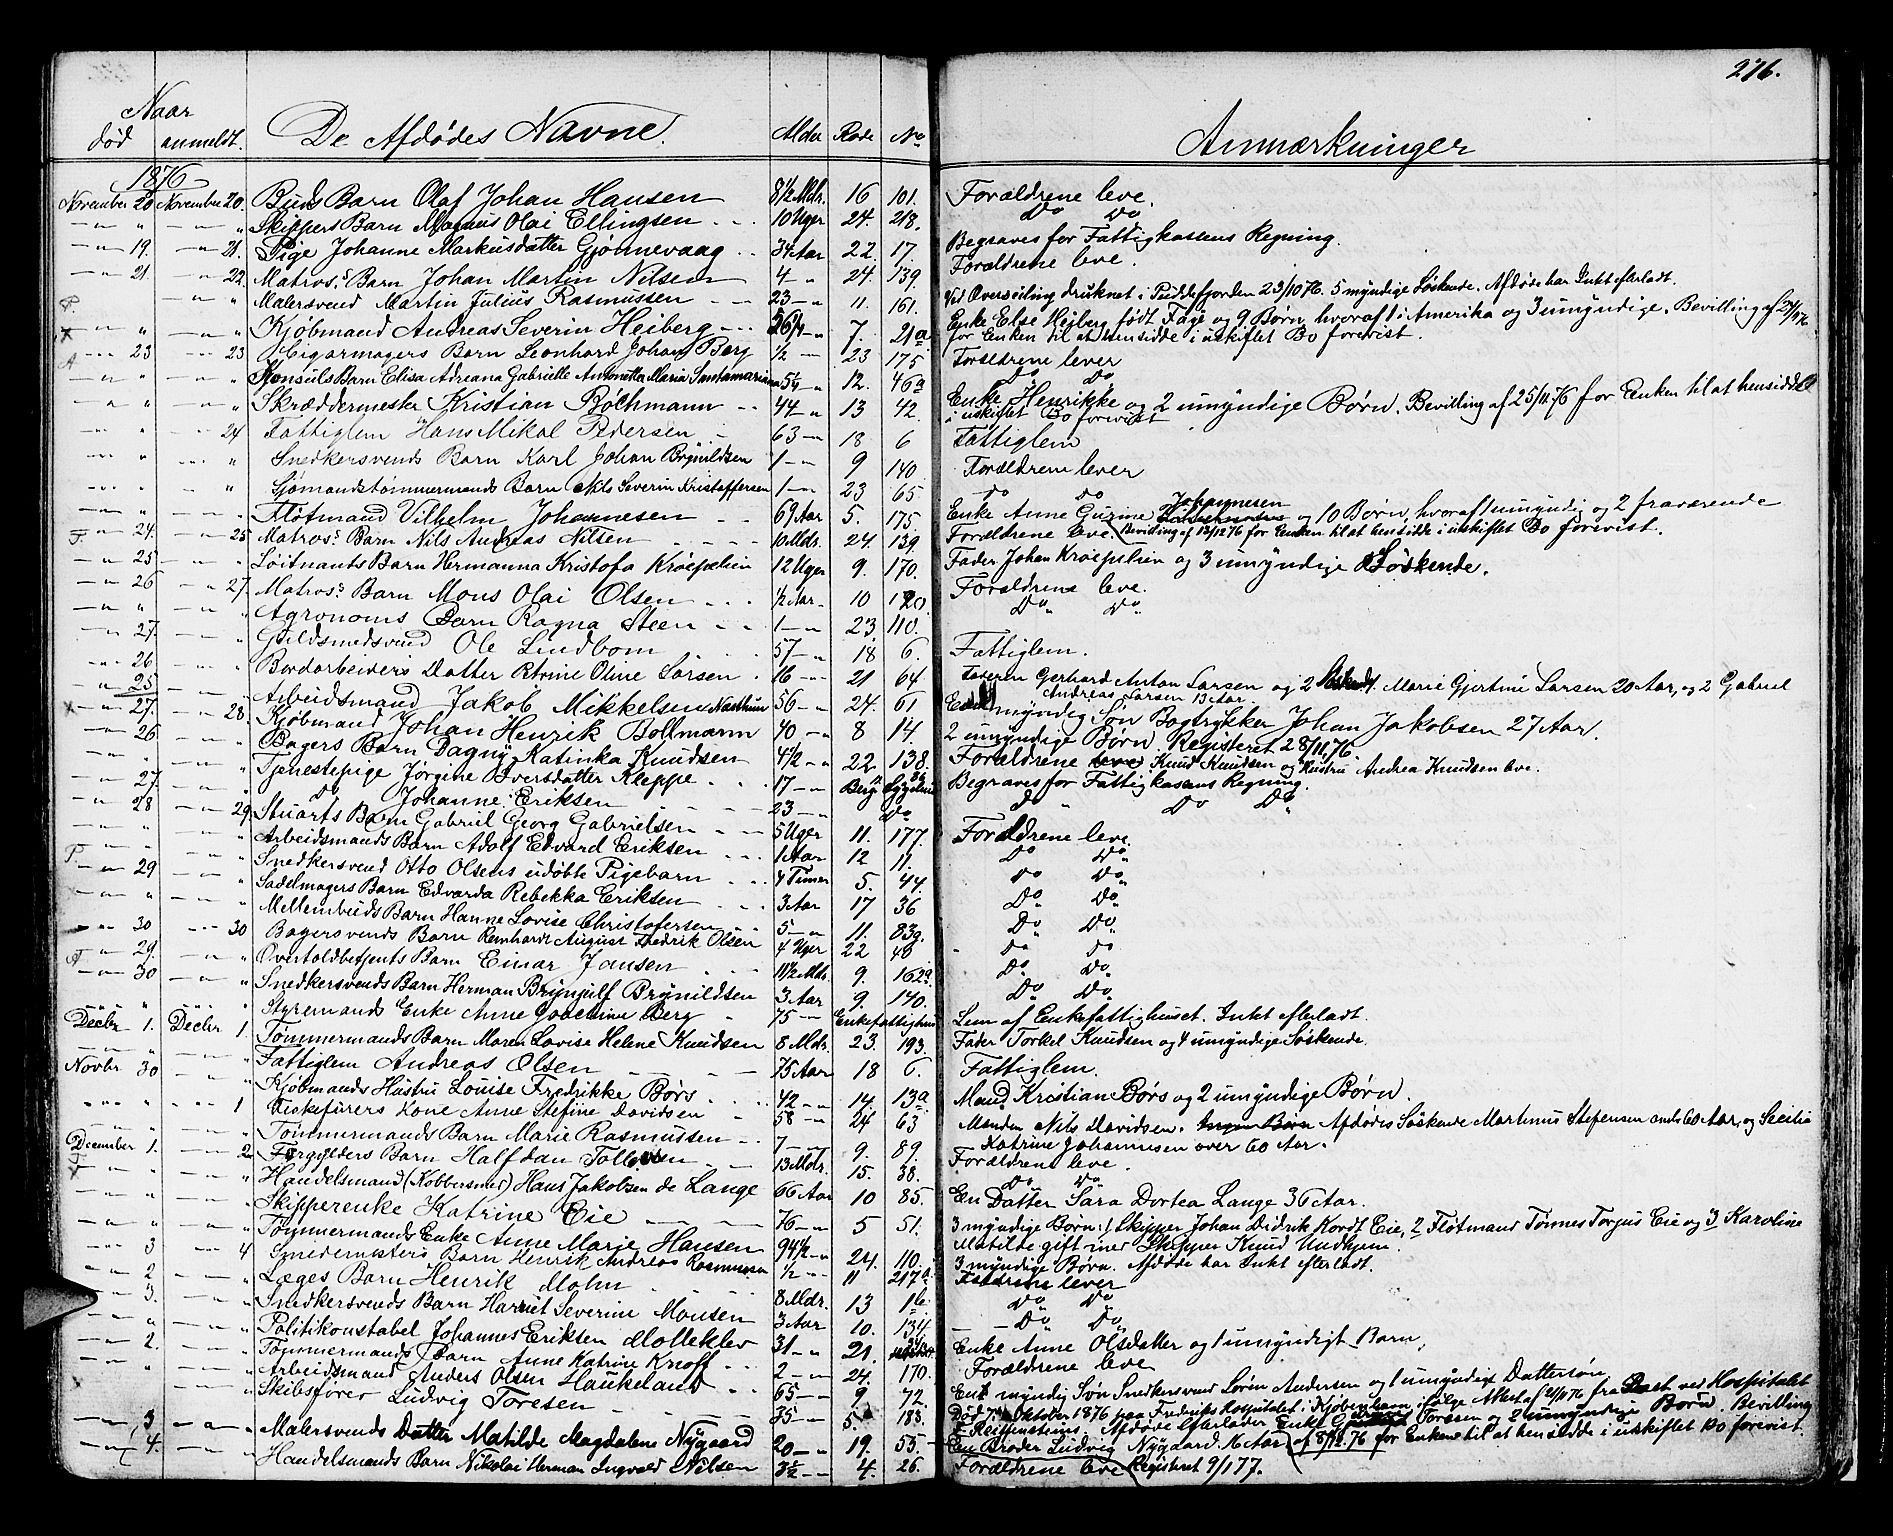 276.
Naar
død anmeldt. De Afdødes Navne. Alder Rode No Anmærkninger
1876
November 20 November 20. Buds Barn Olaf Johan Hansen 8 1/2 Mdr. 16 101. Forældrene leve.
" " Skippers Barn Magnus Olai Ellingsen 10 Uger 24. 218. Do Do
19. 21. Pige Johanne Markusdatter Gjønnevaag 34 Aar 22. 17. Begraves for Fattigkassens Regning.
21. 22. Matros's Barn Johan Martin Nilsen 4 " 24. 139. Forældrene leve.
P. " Malersvend Martin Julius Rasmussen 23 " 11. 161. Ved Overseiling druknet i Puddefjorden 23/10 76. 5 myndige Søskende. Afdøde har Intet efterladt.
x " " Kjøbmand Andreas Severin Heiberg 56 1/4 " 7. 21a Enke Else Heiberg født Faye og 9 Børn, hvoraf 1 i Amerika og 3 umyndige. Bevilling af
for Enken til at hensidde i uskiftet Bo forevist.
A 23 23 Cigarmagers Barn Leonhard Johan Berg 1/2 23 175 Forældrene lever
" " Konsuls Barn Elisa Adreana Gabrielle Antonetta Maria Santamariana 5 1/4 " 12. 46a Do Do
" " Skræddermester Kristian Bochmann 44 " 13 42. Enke Henrikke og 2 umyndige Børn. Bevilling af 25/11.76 for Enken til at hensidde
i uskiftet Bo forevist
" 24 Fattiglem Hans Mikal Pedersen 63 " 18 6 Fattiglem
" " Snedkersvends Barn Karl Johan Brynildsen 1 " 9 140 Forældrene lever
" " Sjømandstømmermands Barn Nils Severin Kristoffersen 1 " 23 65 do do
" " Fløtmand Vilhelm Johannesen 69 Aar 5. 175 Enke Anne Gurine Johannesen og 10 Børn, hvoraf 1 umyndig og 2 fraværende
F. 24. 25 Matros's Barn Nils Andreas Nilsen 10 Mdr. 24. 139. Forældrene leve. (Bevilling af 13/12 76 for Enken til at hensidde i uskiftet Bo forevist.
25 " Løitnants Barn Hermanna Kristofa Kroepelien 12 Uger 9. 170. Fader Johan Kroepelien og 3 umyndige Søskende.
26 27. Matros's Barn Mons Olai Olsen 1/2 Aar 10 120. Forældrene leve.
" " Agronoms Barn Ragna Steen 1 " 23. 110. Do Do
27. " Guldsmedsvend Ole Lindbom 57 " 18 6. Fattiglem.
26 " Bordarbeiders Datter Petrine Oline Larsen 16 " 21 64. Faderen Gerhard Anton Larsen og 2 Marie Gjertine Larsen 20 Aar, og 2 Gabriel
Andreas Larsen 13 Aar.
25 Arbeidsmand Jakob Mikkelsen 56 " 24. 61 En myndig Søn Bogtrykker Johan Jakobsen 27 Aar.
x 27. 28. Kjøbmand Johan Henrik Bollmann 40 " 8 14 2 umyndige Børn. Registeret 28/11.76
26 " Bagers Barn Dagny Katinka Knudsen 4 1/2 " 22. 138. Forældrene Knud Knudsen og Hustru Andrea Knudsen leve.
" " Tjenestepige Jørgine Iversdatter Kleppe 17 " Begraves for Fattigkassens Regning.
27. " do Johanne Eriksen 23 Do Do Do Do
28 29 Stuarts Barn Gabriel Georg Gabrielsen 5 Uger 11. 177. Forældrene leve.
" " Arbeidsmands Barn Adolf Edvard Eriksen 1 Aar 12 11. Do Do
P. " " Snedkersvend Otto Olsens udøbte Pigebarn 4 Timer 5. 44. Do Do
29 " Sadelmagers Barn Edvarda Rebekka Eriksen 3 Aar 17 36 Do Do
" " Mellembuds Barn Hanne Lovise Christofersen 5 " 11. 83g. Do Do
30 30 Bagersvends Barn Reinhardt August Fredrik Olsen 4 Uger 22 40 Do Do
A 29. " Overtoldbetjents Barn Einar Jansen 11 1/2 Mdr. 9. 162a Do Do
30 " Snedkersvends Barn Herman Brynjulf Brynildsen 3 Aar 9. 140. Do Do
" " Styremands Enke Anne Joachime Berg 75 Enkefattighuset Lem af Enkefattighuset. Intet efterladt.
Decbr. 1. Decbr 1. Tømmermands Barn Maren Lovise Helene Knudsen 8 Mdr. 23. 193. Fader Torkel Knudsen og 4 umyndige Søskende.
" " Fattiglem Andreas Olsen 75 Aar 18 6. Fattiglem.
Novbr. 30 " Kjøbmands Hustru Louise Fredrikke Børs 42 " 14. 13a Mand Kristian Børs og 2 umyndige Børn.
" 1 Fiskeførers Kone Anne Stefine Davidsen 58 " 24 63 Manden Nils Davidsen. Ingen Børn Afdødes Søskende Martinus Stefensen 60 Aar, og Secilia
Katrine Johannesen over 60 Aar.
" " Tømmermands Barn Marie Rasmussen 7 9. 89. Forældrene leve.
December 1. 2 Forgylders Barn Halfdan Tollefsen 13 Mdr. 15. 38. Do Do
" " Handelsmand (Kobbersmed) Hans Jakobsen de Lange 66 Aar 10 85. En Datter Sara Dortea Lange 36 Aar.
" " Skipperenke Katrine Eie 76 " 5 51. 3 myndige Børn: 1 Skipper Johan Didrik Kordt Eie, 2 Fløtmand Tønnes Torjus Eie og 3 Karoline
Matilde gift med Skipper Knud Undhjem.
" " Tømmermands Enke Anne Marie Hansen 94 1/2 " 24. 110. 3 myndige Børn. Afdøde har Intet efterladt.
3 4 Smedemesters Barn Henrik Andreas Rasmussen 1/2 " 11 217a Forældrene lever
2 " Læges Barn Henrik Mohn 8 Mdr. 13 1b. Do Do
3. " Snedkersvends Barn Harriet Severine Monsen 3 Aar 10. 134 Do Do
" " Politikonstabel Johannes Eriksen Molleklev 31 " 21. Enke Anne Olsdatter og 1 umyndigt Barn.
2. " Tømmermands Barn Anne Katrine Knoff 2 " 24. 170. Forældrene leve
" " Arbeidsmand Anders Olsen Haukeland 65 " 9. 72. En myndig Søn Snedkersvend Søren Andersen og 1 umyndig Dattersøn
" Skibsfører Ludvig Toresen 35 " 5. 188. Død 7. Oktober 1876 paa Fredriks Hospitalet i Kjøbenhavn ifølge Attest af 21/11 76 fra ved Hospitalet
Afdøde efterlader Enke Toresen og 2 umyndige Børn. Bevilling
3 " Malersvends Datter Matilde Magdalene Nygaard 20 " 19. 55. En Broder Ludvig Nygaard. 16 Aar) af 8/12.76 for Enken til at hensidde i uskiftet Bo forevist.
4. " Handelsmands Barn Nikolai Herman Ingvald Nilsen 3 1/2 4. 26. Forældrene leve (Registeret 9/1 77.